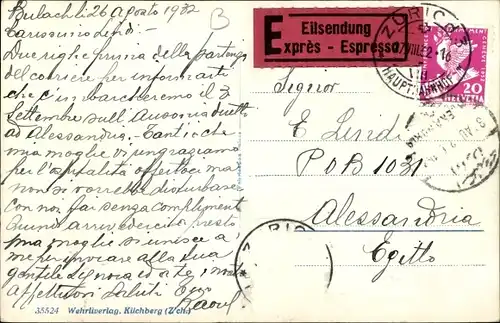 Bulach li 26 Agosto 1932
Carissimo
Due righe prima della partenza
del corriere per informarti
che c'imbarcheremo il 3
Settembre sull'Ausonia diretto
ad Alessandria. Tanti che
mia moglie vi ringraziamo
per l'ospitalità offertaci ma
non si vorrebbe disturbare
con noi fai senza complimenti
arrivederci presto
ma moglie si unisce a
me per inviare alla tua
gentile Signora ed a te, i nostri
affettuosi saluti
Raoul
35524 Wehrliverlag, Kilchberg (Zch.)
E
Eilsendung
Exprès - Espresso
ZÜRICH
HAUPTBAHNHOF
20
HELVETIA
Signor
E. Lindi
P O B 1031
Alessandria
Egitto